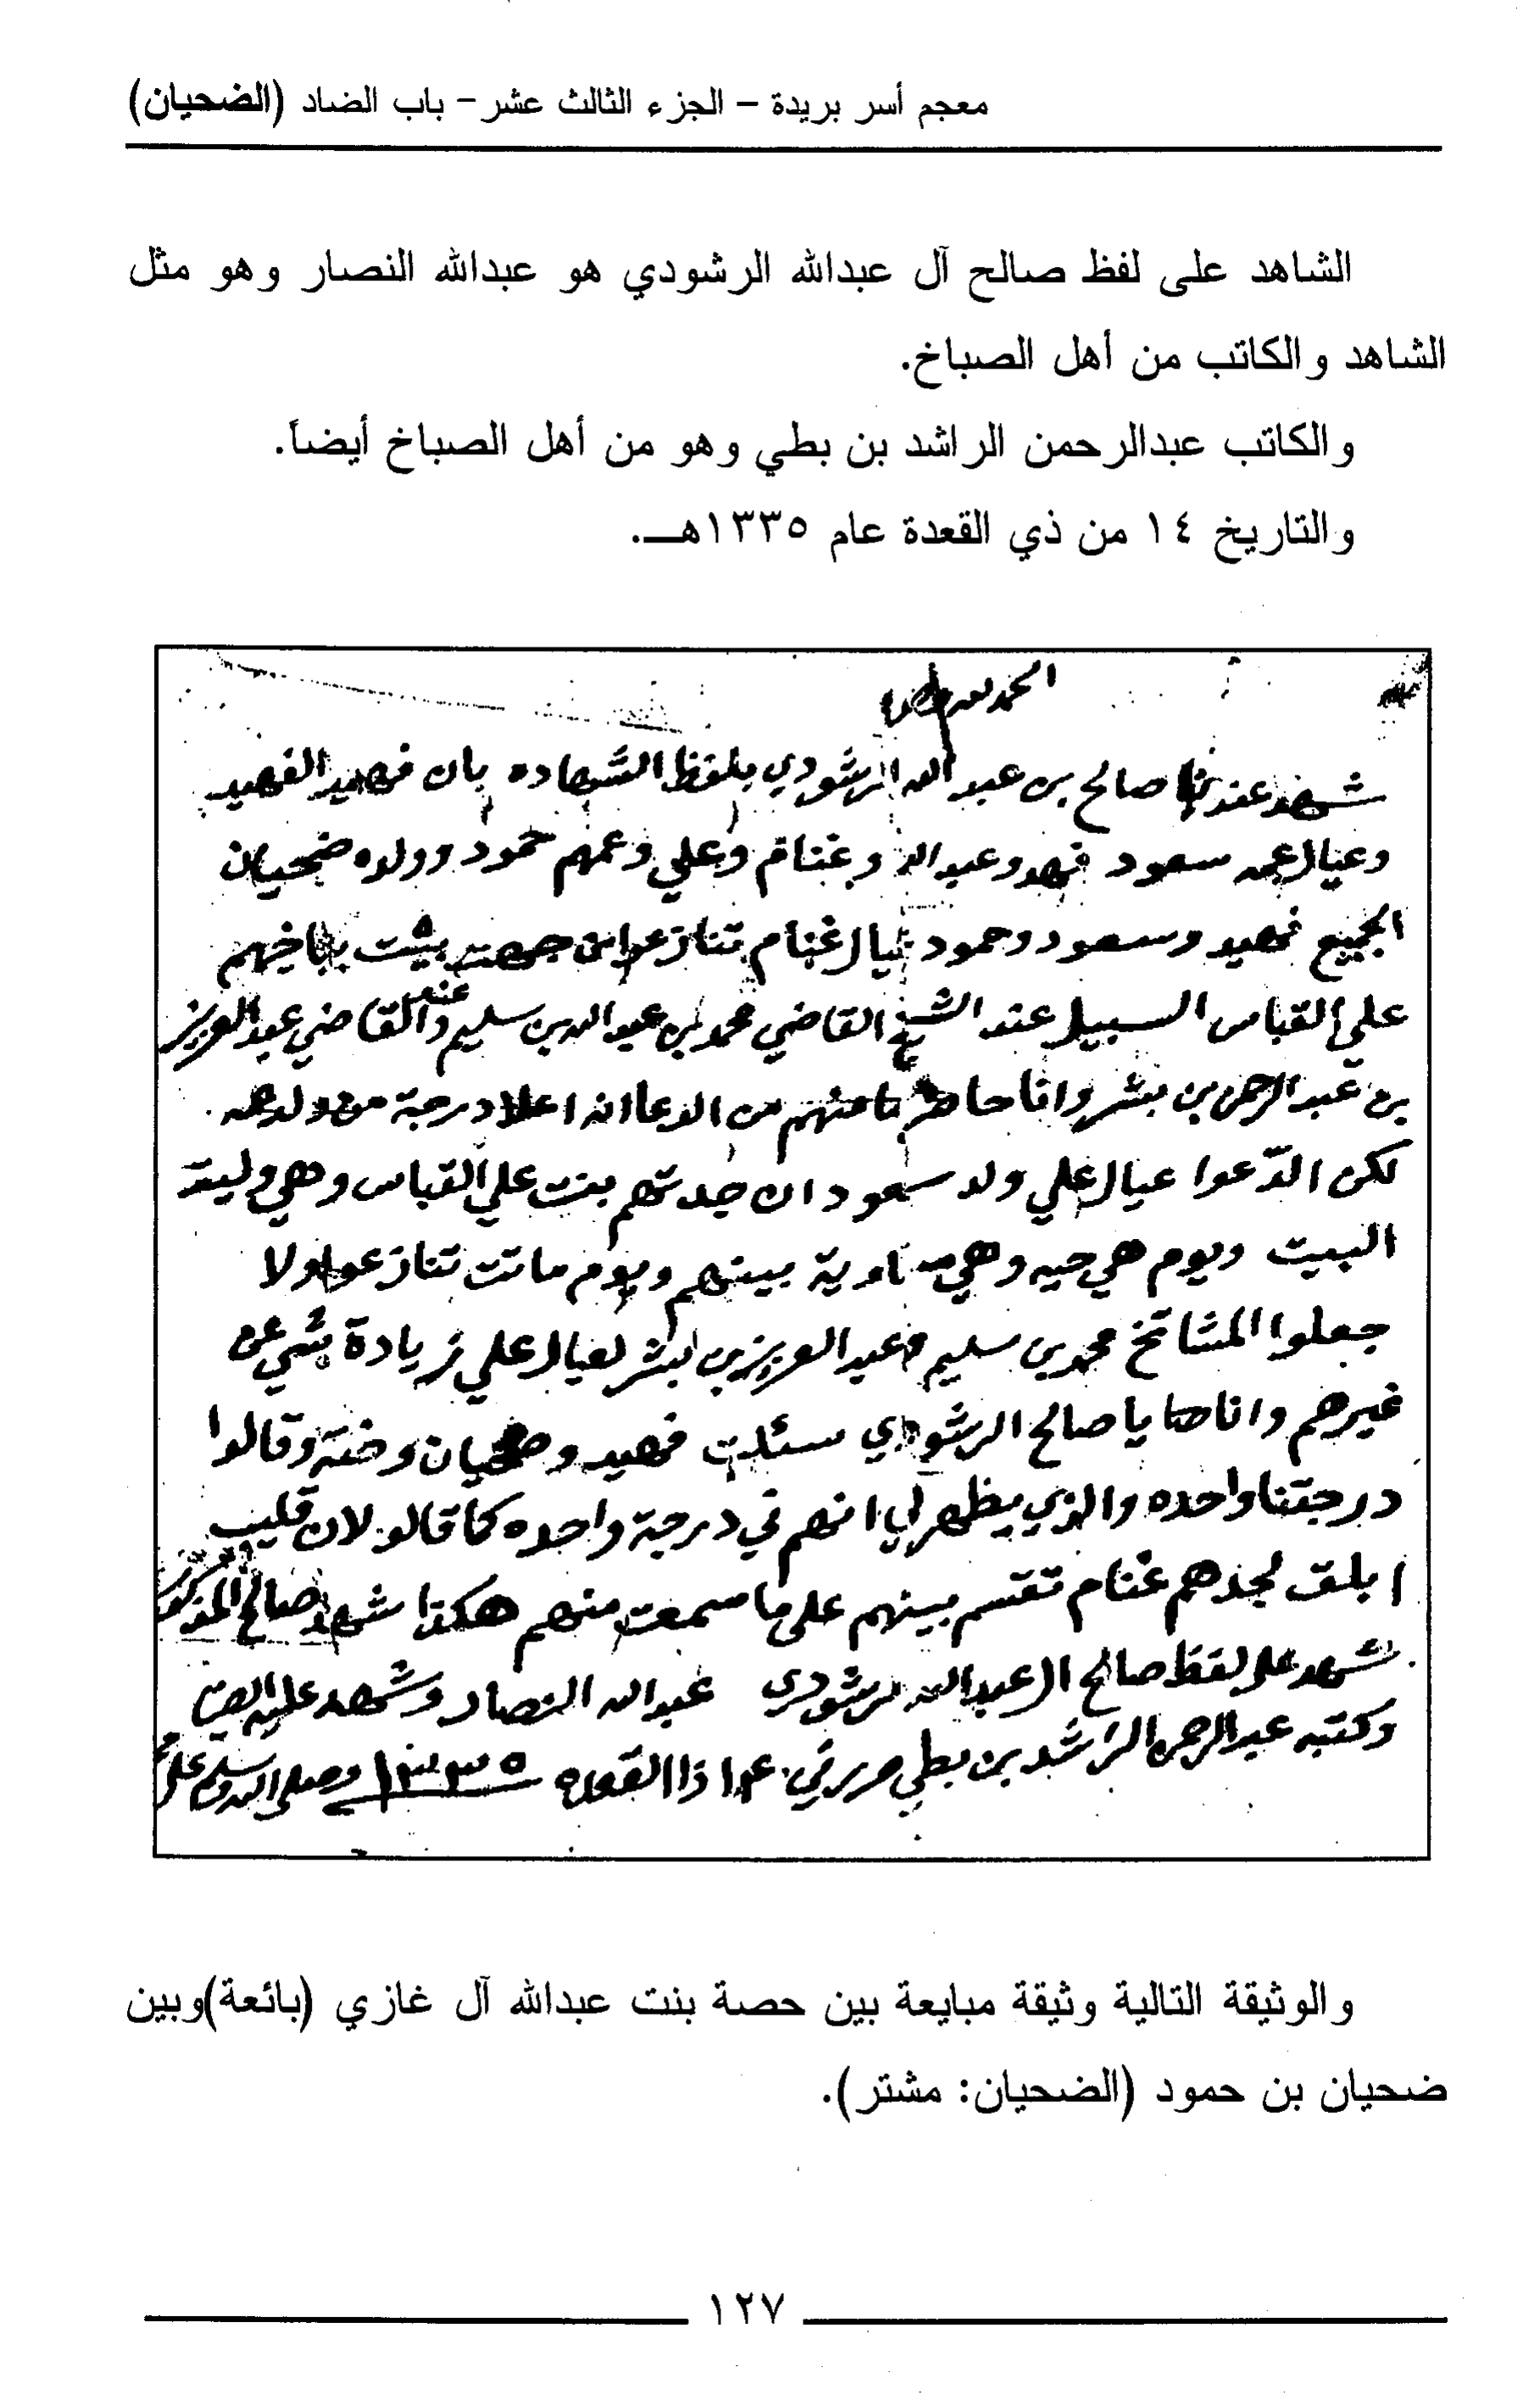 معجم أسر بريدة – الجزء الثالث عشر – باب الضاد (الضحيان)
الشاهد على لفظ صالح آل عبدالله الرشودي هو عبدالله النصار وهو مثل
الشاهد والكاتب من أهل الصباخ.
والكاتب عبدالرحمن الراشد بن بطي وهو من أهل الصباخ أيضاً.
والتاريخ ١٤ من ذي القعدة عام ١٣٣٥هـ.
الحمد لله وحده
شهد عندنا صالح بن عبدالله الرشودي بلفظ الشهاده بان فهيد الفهيد
وعيال عمه سعود فهد وعبدالله وغنام وعلي وعمهم حمود وولده ضحيان
الجميع فهيد وسعود وحمود عيال غنام تنازعوا من جهة بيت
علي القباس السبيل عند الشيخ القاضي محمد بن عبدالله بن سليم وعند القاضي عبدالعزيز
بن عبدالرحمن بن بشر وانا حاضر منهم من الدعا انه اعلا درجة من ولد عمه
لكن ادعوا عيال علي ولد سعود ان جدتهم بنت علي القباس وهي وليت
البيت ويوم هي حيه وهي بينهم ويوم ماتت تنازعوا ولا
جعلوا المشائخ محمد بن سليم وعبدالعزيز بن بشر لعيال علي زيادة شي عن
غيرهم وانا يا صالح الرشودي سئلت فهيد وضحيان وقالوا
درجتنا واحده والذي يظهر لي انهم في درجة واحده كما قالو لان قليب
لجدهم غنام تقتسم بينهم على ما سمعت منهم هكذا شهد صالح المذكور
شهد على لفظ صالح ال عبدالله الرشودي عبدالله النصار وشهد عليه
وكتبه عبدالرحمن الراشد بن بطي حرر في ١٤ ذا القعده ١٣٣٥ وصلى الله وسلم على
والوثيقة التالية وثيقة مبايعة بين حصة بنت عبدالله آل غازي (بائعة)وبين
ضحيان بن حمود (الضحيان: مشتر).
١٢٧